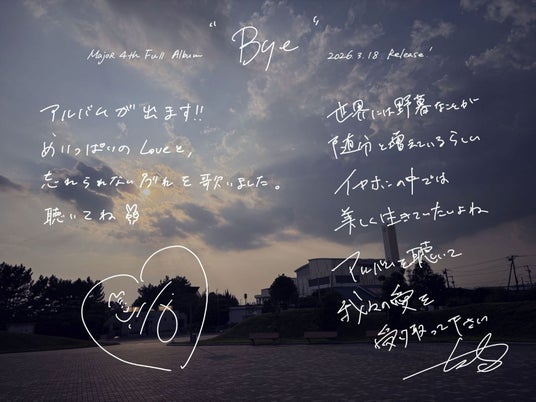 Major 4th Full Album "Bye" 2026.3.18 Release!
アルバムが出ます!!
めいっぱいのLoveと、
忘れられない別れを歌いました。
聴いてね
世界には野暮なことが
随分と増えているらしい
イヤホンの中では
美しく生きていたいよね
アルバムを聴いて
我々の愛を
受け取って下さい